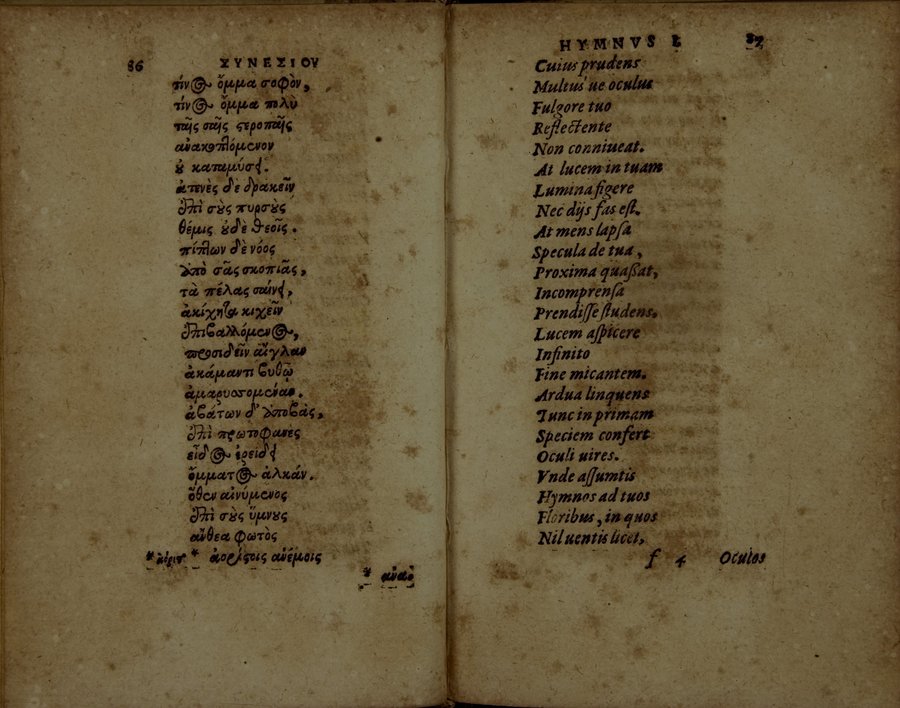 86 ΣΥΝΕΣΙΟΥ
τίνος ὄμμα σοφὸν,
τίνος ὄμμα πολὺ
ταῖς σαῖς στεροπαῖς
ἀνακοπτόμενον
οὐ καταμύσει.
ἀτενὲς δὲ δρακεῖν
ἐπὶ σοὺς πυρσοὺς
θέμις οὐδὲ θεοῖς.
πίπτων δὲ νόος
ἀπὸ σᾶς σκοπιᾶς,
τὰ πέλας σαίνει,
ἀκίχητα κιχεῖν
ἐπιβαλλόμενος,
προσιδεῖν αἴγλαν
ἀκάμαντι βυθῷ
ἀμαρυσσομέναν.
ἀβάτων δ' ἀποβὰς,
ἐπὶ πρωτοφανὲς
εἶδος ἐρείδει
ὄμματος ἀλκάν.
ὅθεν αἰνύμενος
ἐπὶ σοὺς ὕμνους
ἄνθεα φωτὸς
* ἀορίστοις ἀνέμοις
HYMNVS I. 87
Cuius prudens
Multus'ue oculus
Fulgore tuo
Reflectente
Non conniueat.
At lucem in tuam
Lumina figere
Nec dijs fas est.
At mens lapsa
Specula de tua,
Proxima quassat,
Incomprensa
Prendisse studens,
Lucem aspicere
Infinito
Fine micantem.
Ardua linquens
Tunc in primam
Speciem confert
Oculi uires.
Vnde assumtis
Hymnos ad tuos
Floribus, in quos
Nil uentis licet,
f 4 Oculos